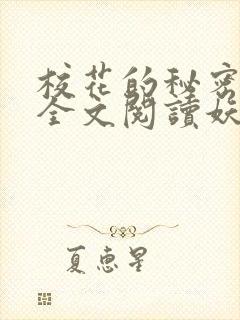 校花的秘密
全文閱讀妖
夏惠星